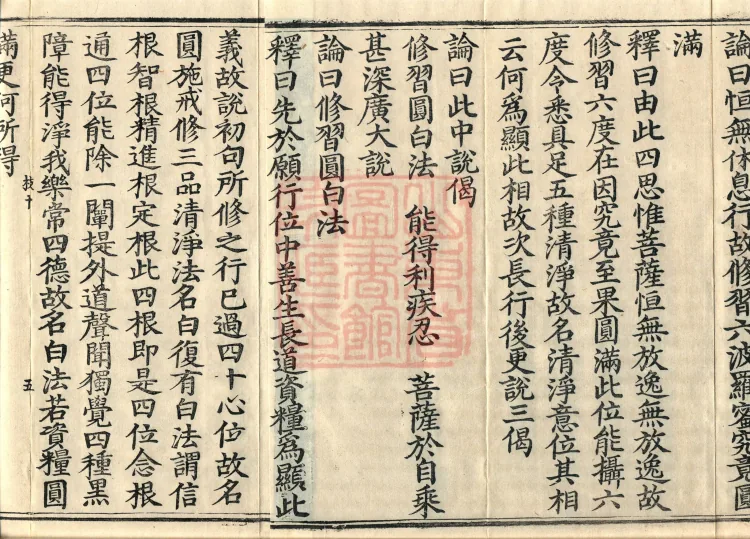 論曰恒無休息行故修習六波羅蜜究竟圓
滿
釋曰由此四思惟菩薩恒無放逸無放逸故
修習六度在因究竟至果圓滿此位能攝六
度令悉具足五種清淨故名清淨意位其相
云何爲顯此相故次長行後更說三偈
論曰此中說偈
修習圓白法 能得利疾忍 菩薩於自乘
甚深廣大說
論曰修習圓白法
釋曰先於願行位中善生長道資糧爲顯此
義故說初句所修之行已過四十心位故名
圓施戒修三品清淨法名白復有白法謂信
根智根精進根定根此四根即是四位念根
通四位能除一闡提外道聲聞獨覺四種黑
障能得淨我樂常四德故名白法若資糧圓
滿更何所得
技十
五